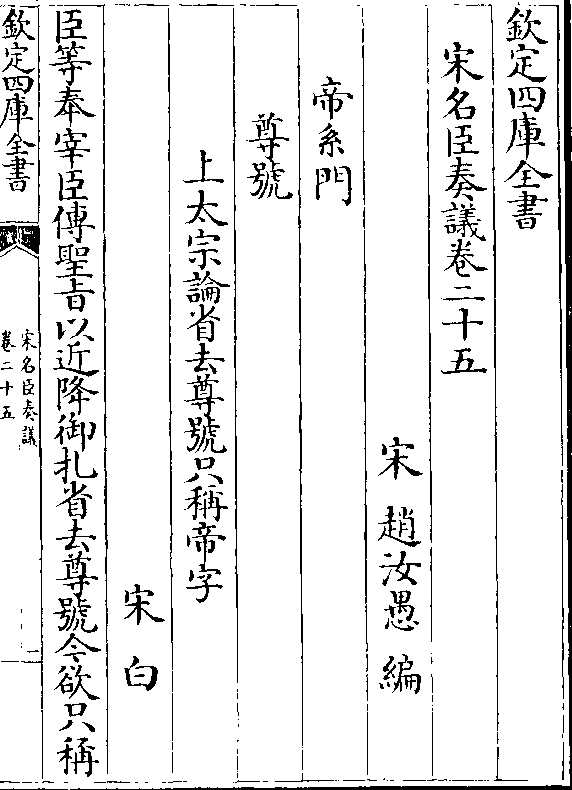 欽定四庫全書
宋名臣奏議卷二十五
宋 趙汝愚 編
帝系門
尊號
上太宗論省去尊號只稱帝字
宋白
臣等奉宰臣傳聖旨以近降御札省去尊號今欲只稱
欽定四庫全書
宋名臣奏議
卷二十五